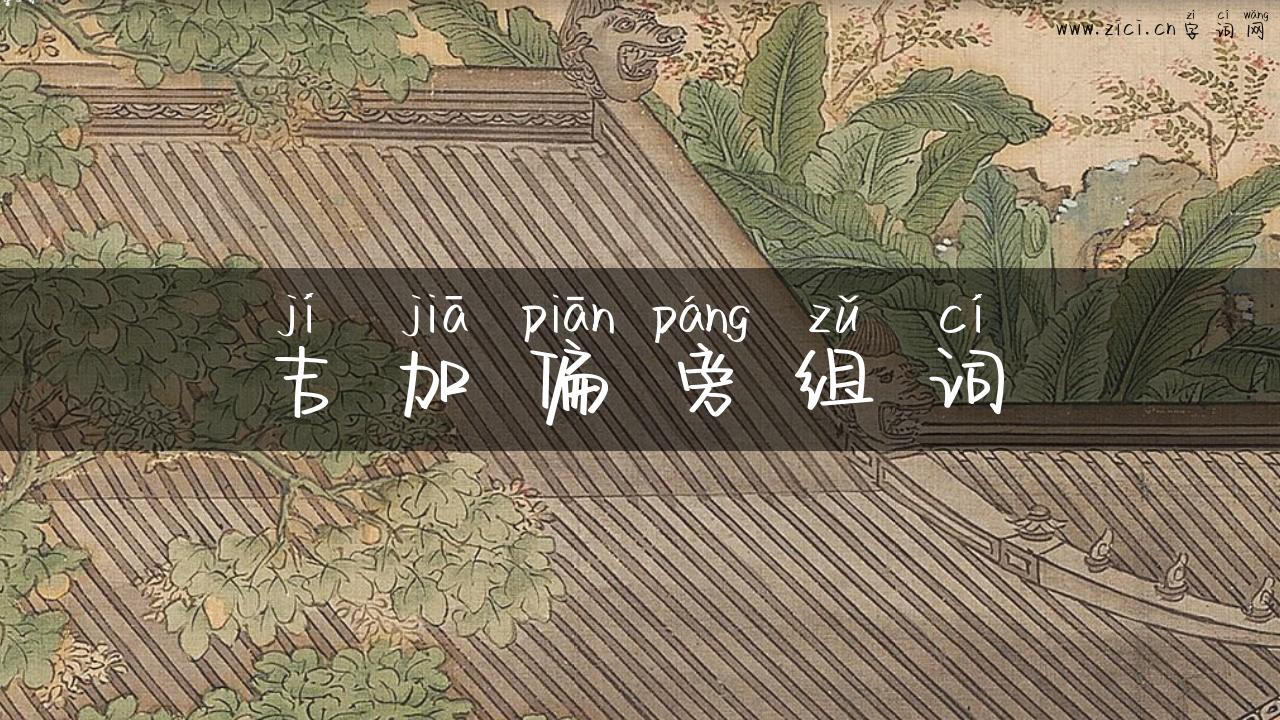 zì cí wǎng
www.zici.cn 字词网
jí jiā piān páng zǔ cí
吉加偏旁组词